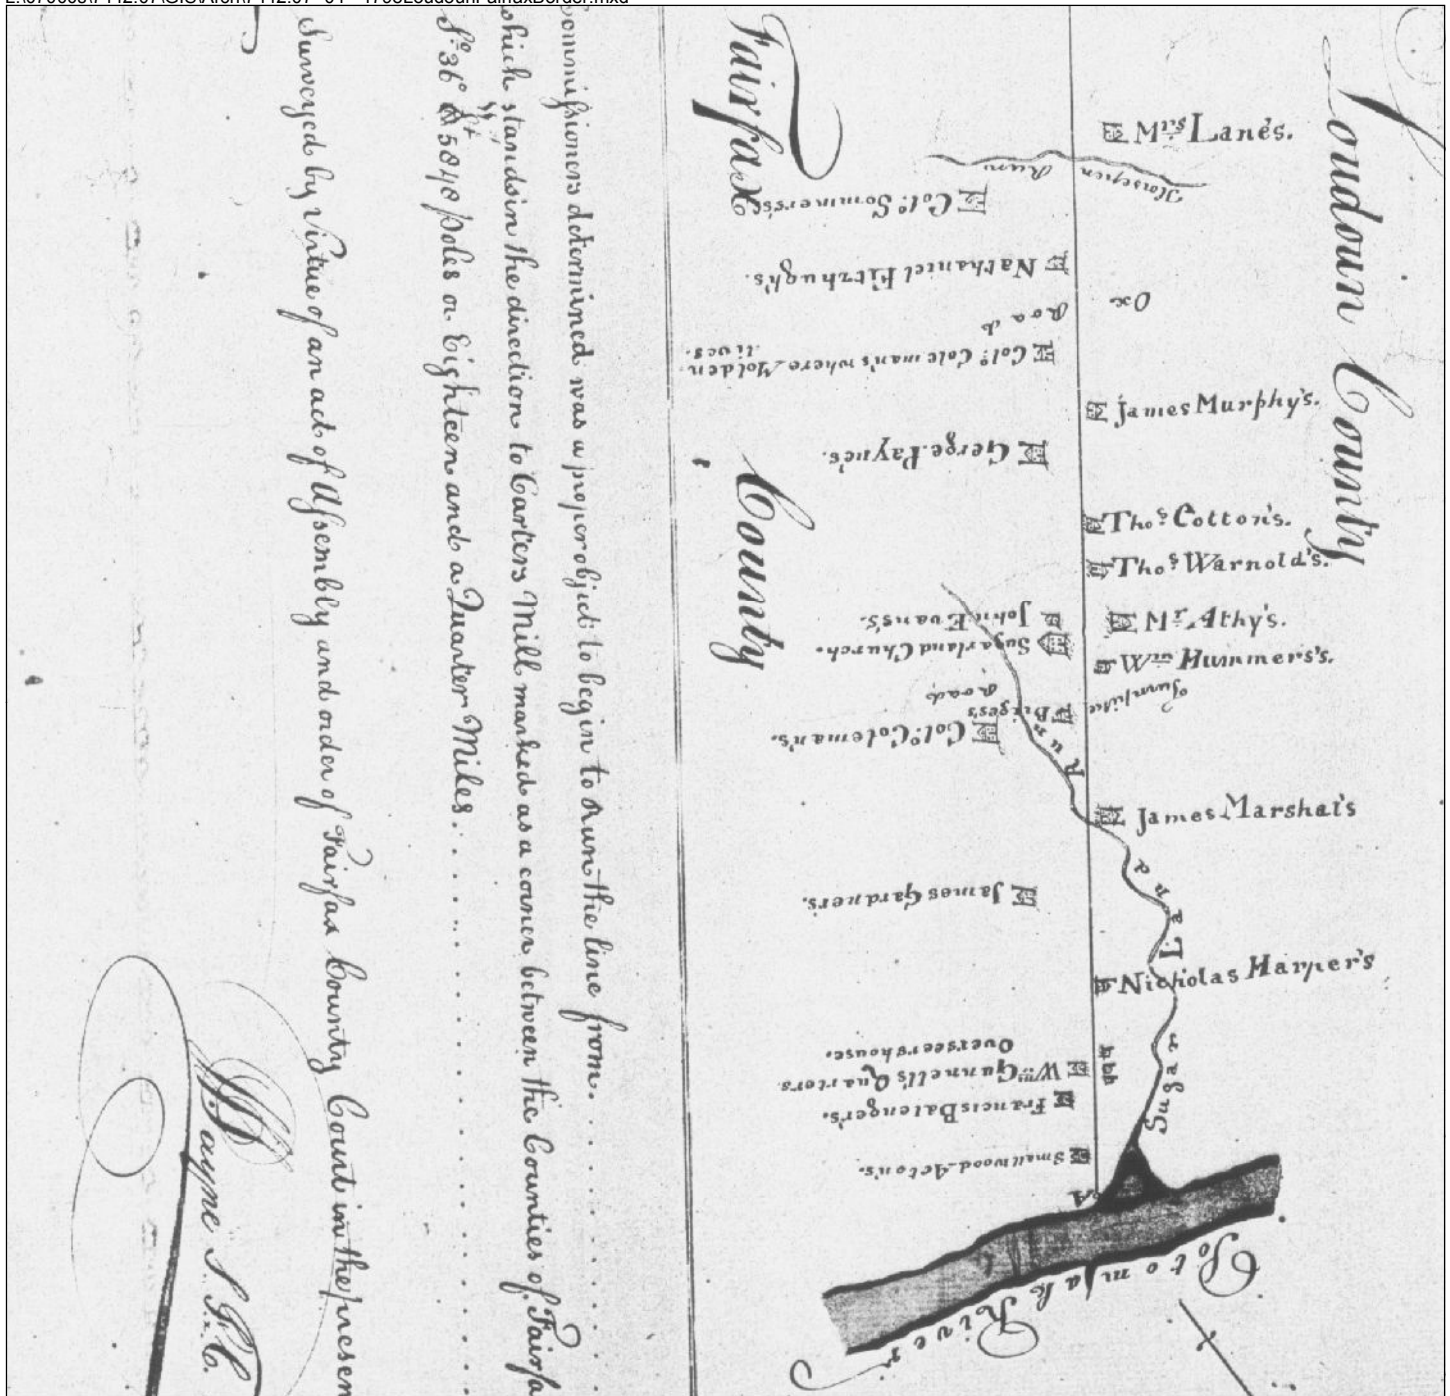 Loudoun County
Fairfax
County
Mrs. Lane's.
Horsepen Run
Colo. Sommers's
Nathaniel Fitzhugh's.
Ox
Road
Colo. Coleman's where Molden
lives.
James Murphy's.
Gerge Payne's.
Thos. Cotton's.
Thos. Warnold's.
John Evans's.
Mr. Athy's.
Sugarland Church.
Wm. Hummers's.
Turnpike
Road
Birges's
Colo. Coleman's.
James Marshal's
James Gardner's.
Nicholas Harper's
Sugar Land Run
Overseers house.
Wm. Gunnell's Quarters
Francis Batenger's.
Smallwood Acton's.
A
Potomak River
ommissioners determined was a proper object to begin to Run the line from.
which stands in the direction to Carters Mill marked as a corner between the Counties of Fairfa
So. 36° 5840 poles or Eighteen and a Quarter Miles.
Surveyed by Virtue of an act of Assembly and order of Fairfax County Court in the presen
W. Payne S.F.C.